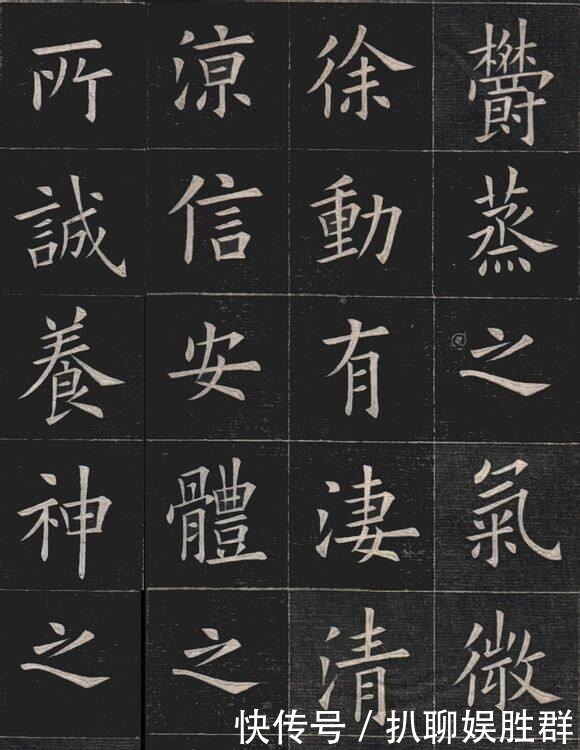 鬱蒸之氣微
徐動有淒清
涼信安體之
所誠養神之
快传号 / 扒聊娱胜群